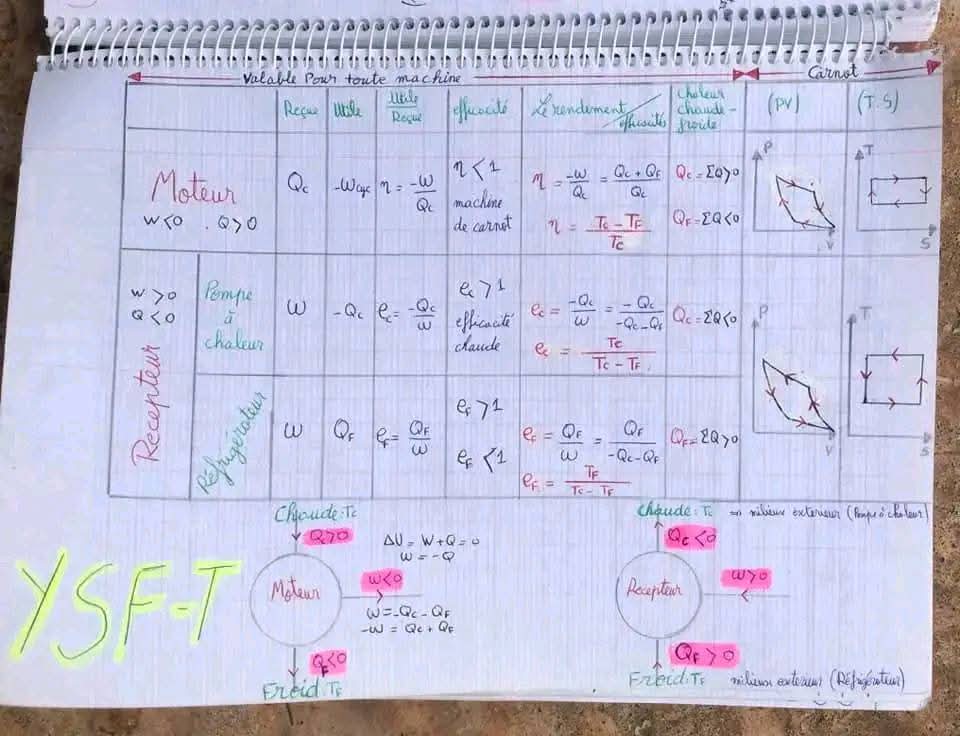 Valable Pour toute machine
Carnot
Reçue
Utile
Utile
Reçue
efficacité
Le rendement / efficacités
chaleur
chaude-
froide
(PV)
(T.S)
Moteur
W<0 . Q>0
Qc
-Wcyc
η = -W/Qc
η < 1
machine
de carnot
η = -W/Qc = Qc + QF/Qc
η = Tc - TF/Tc
Qc = ΣQ>0
QF = ΣQ<0
P
V
T
S
W>0
Q<0
Recepteur
Pompe
à
chaleur
W
-Qc
ec = -Qc/W
ec > 1
efficacité
chaude
ec = -Qc/W = -Qc/-Qc-QF
ec = Tc/Tc - TF
Qc = ΣQ<0
P
V
T
S
Réfrigérateur
W
QF
eF = QF/W
eF > 1
eF < 1
eF = QF/W = QF/-Qc-QF
eF = TF/Tc - TF
QF = ΣQ>0
Chaude: Tc
Q>0
ΔU = W + Q = 0
W = -Q
Moteur
W<0
W = -Qc - QF
-W = Qc + QF
QF<0
Froid: TF
Chaude: Tc
milieux exterieur (Pompe à chaleur)
Qc<0
Recepteur
W>0
QF>0
Froid: TF
milieux exterieur (Réfrigérateur)
YSF-T